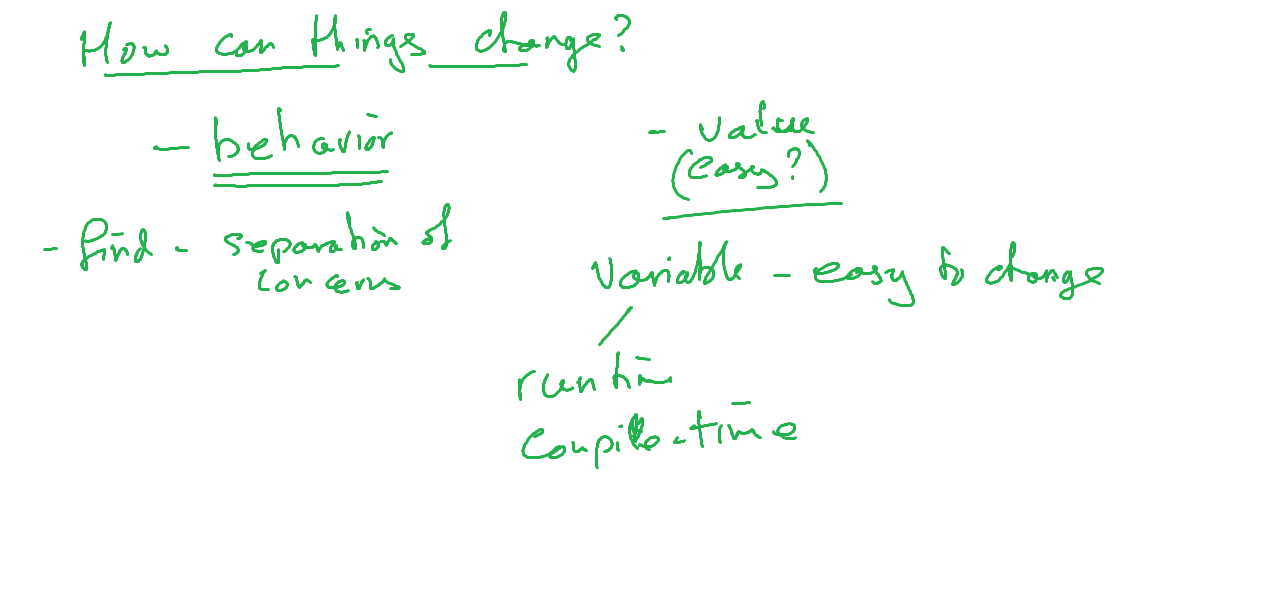 How can things change?
- behavior
- value
(easy?)
- find - separation of
concerns
variable - easy to change
runtim
compile-time